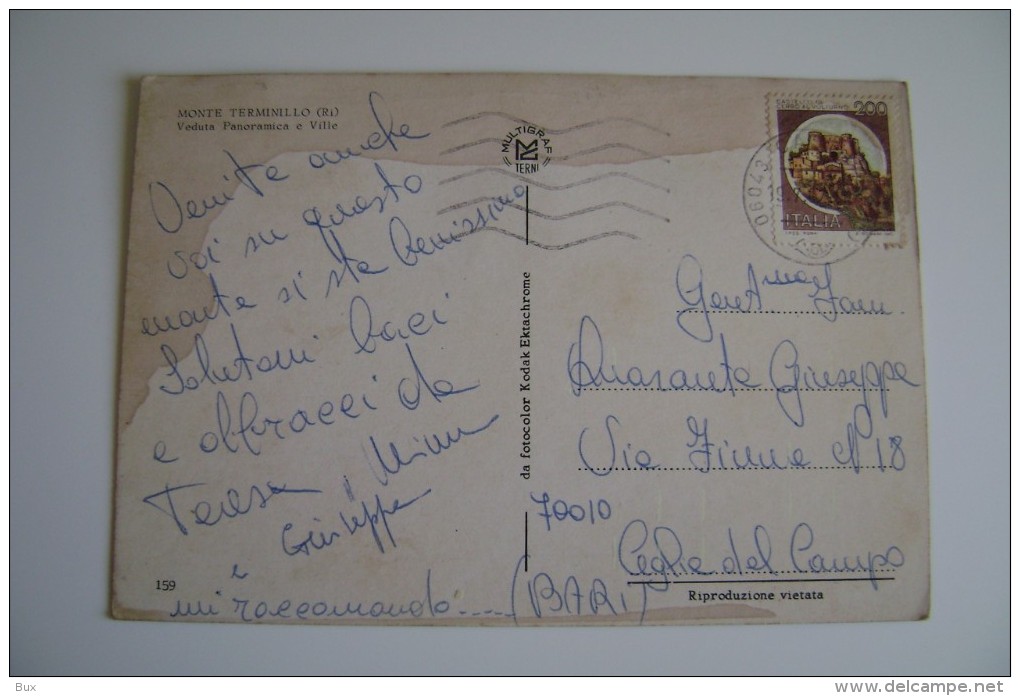 MONTE TERMINILLO (Ri)
Veduta Panoramica e Ville
Venite anche
voi su questo
monte si sta benissimo
Salutoni baci
e abbracci da
Teresa Mimmo
Giuseppe
e
mi raccomando.....
159
MULTIGRAF
TERNI
da fotocolor Kodak Ektachrome
200
ITALIA
06043
Gent.ma Fam
Quaranta Giuseppe
Via Fiume N 18
70010
Ceglie del Campo
(BARI)
Riproduzione vietata
Bux
www.delcampe.net